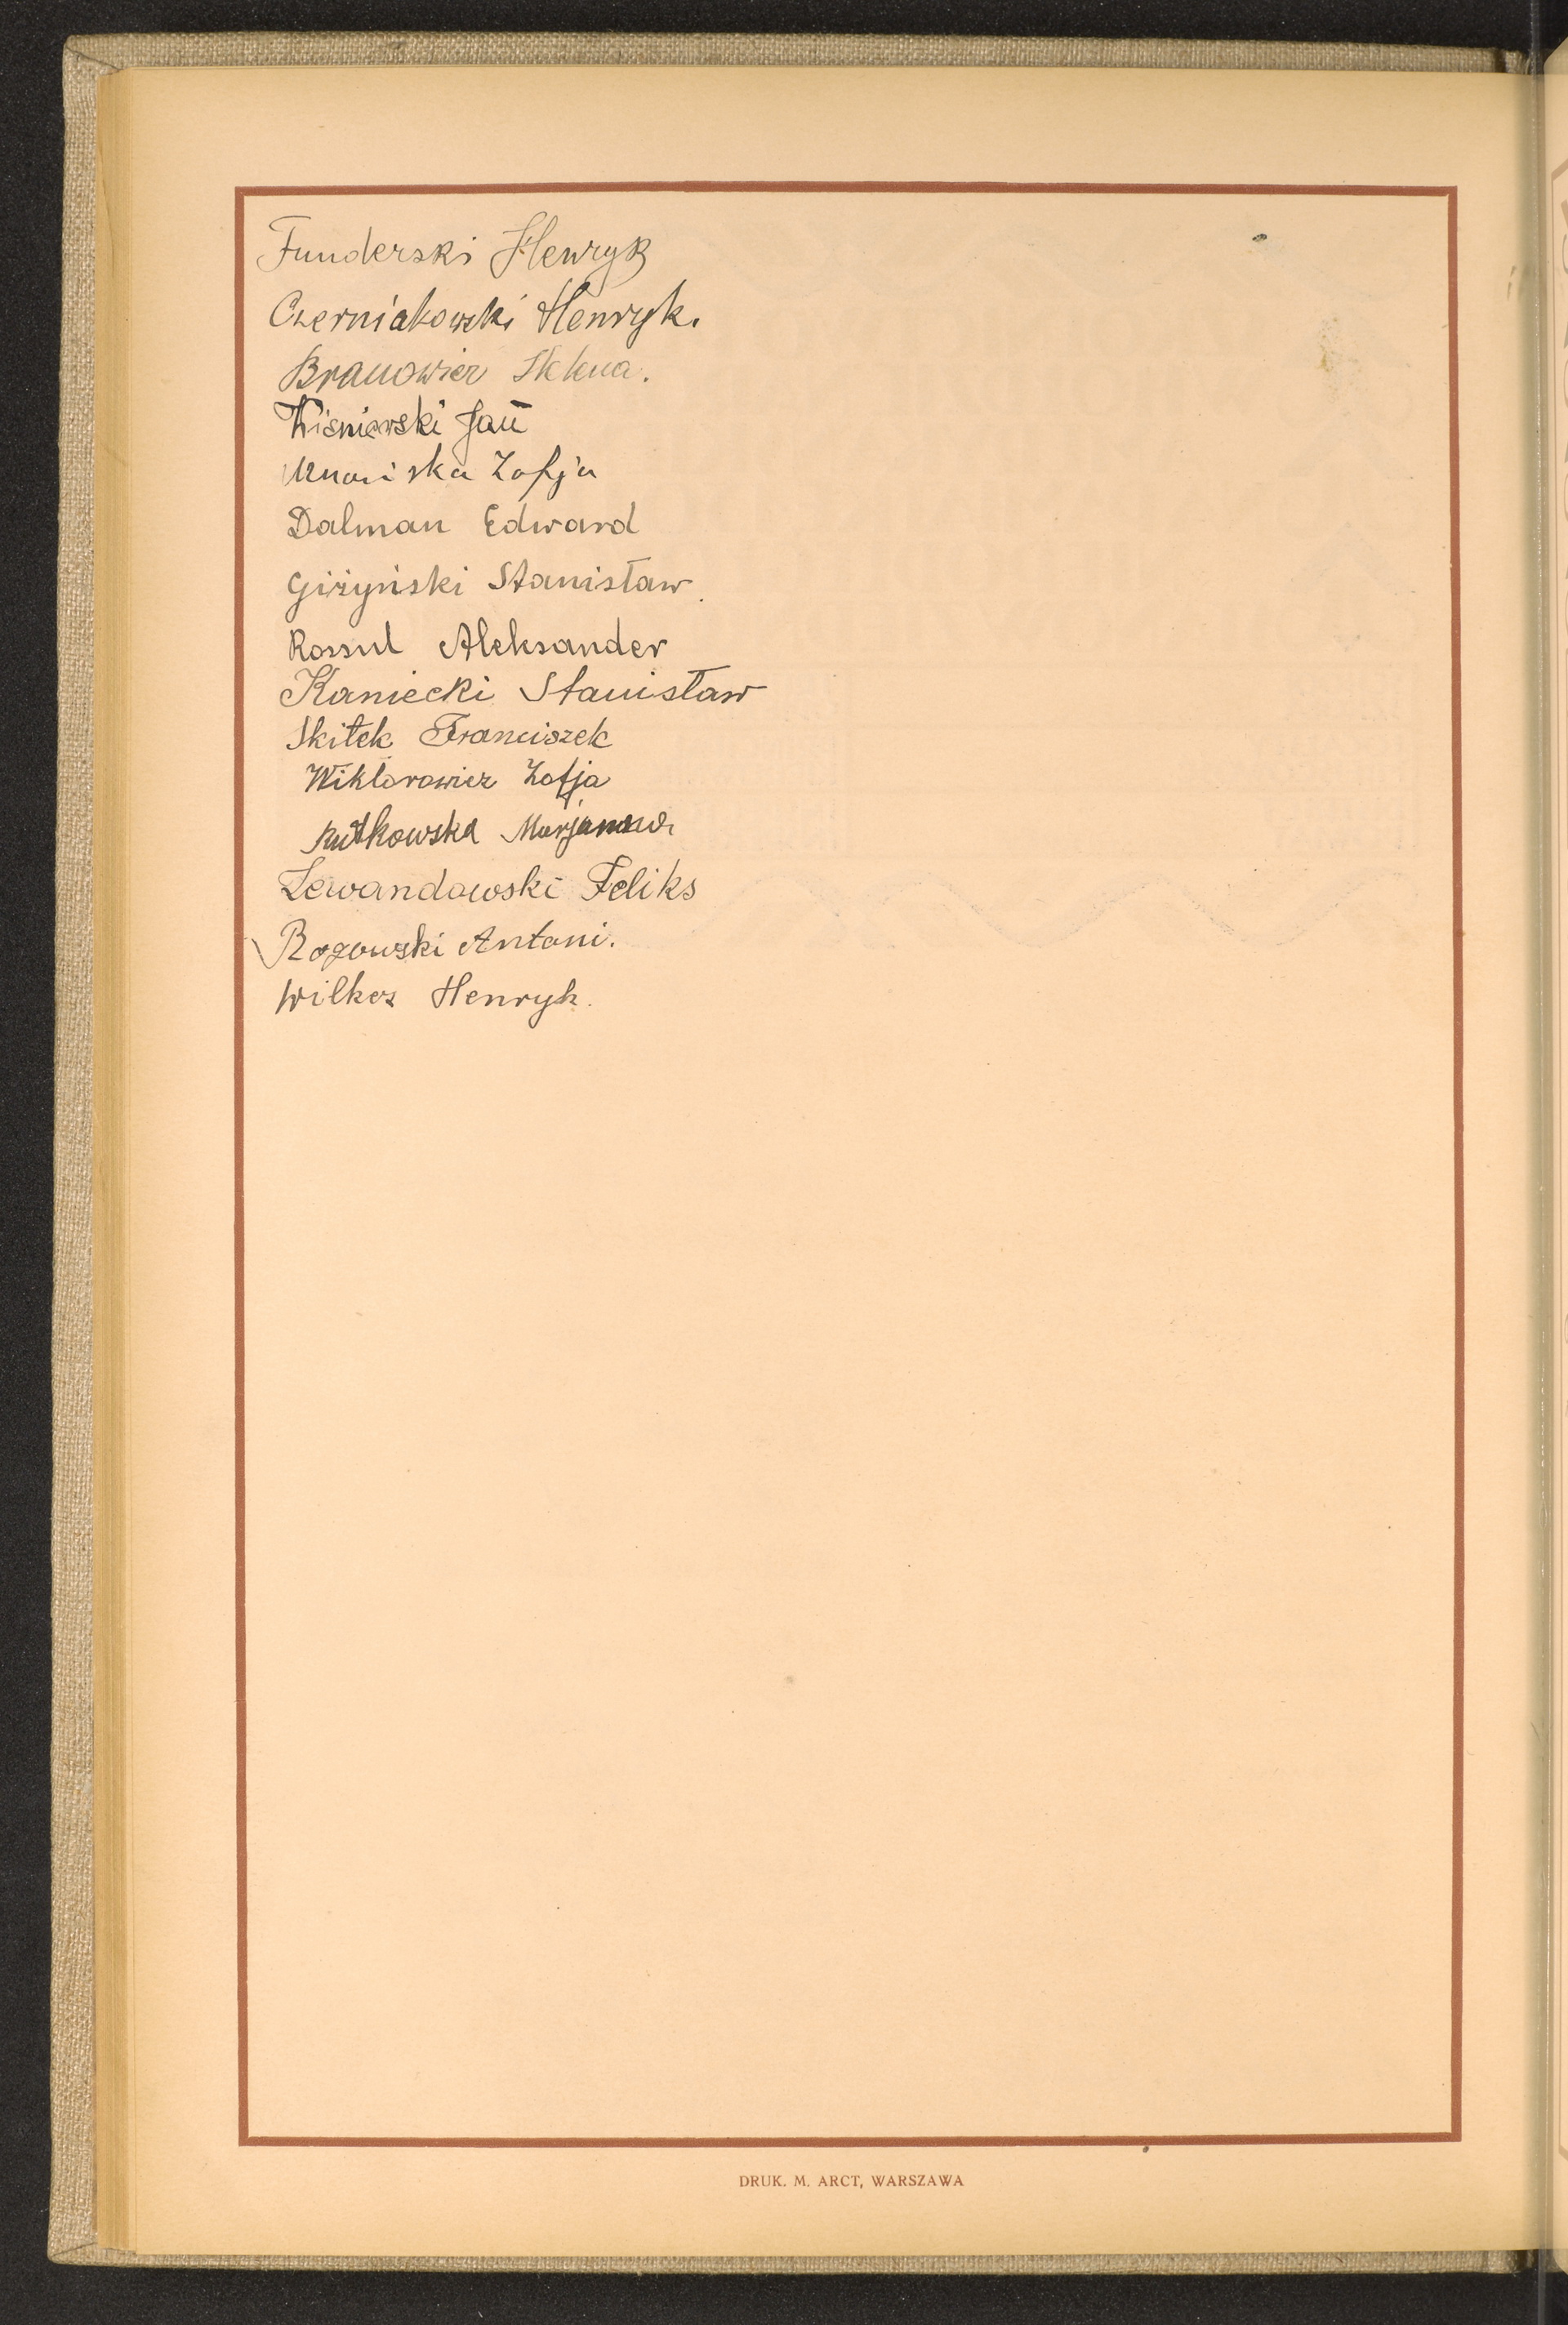 Funderski Henryk
Czerniakowski Henryk.
Branowicz
Wisniewski Jan
Zofja
Dalman Edward
Giżyński Stanisław.
Rossul Aleksander
Kaniecki Stanisław
Skitek Franciszek
Wiktorowicz Zofja
Rutkowska Marjanna
Lewandowski Feliks
Rogowski Antoni.
Wilkos Henryk.
DRUK. M. ARCT, WARSZAWA